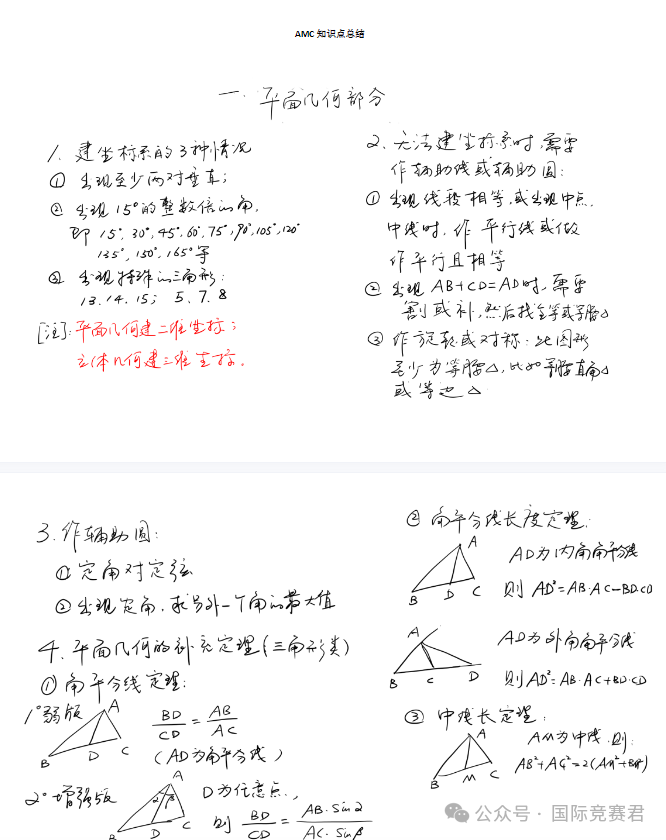 AMC 知识点总结
一. 平面几何部分
1. 建坐标系的3种情况
① 出现至少两对垂直;
② 出现15°的整数倍的角,
即 15°, 30°, 45°, 60°, 75°, 90°, 105°, 120°
135°, 150°, 165° 等
③ 出现特殊的三角形:
13, 14, 15; 5, 7, 8
[注]: 平面几何建二维坐标;
立体几何建三维坐标.
2. 无法建坐标系时, 需要
作辅助线或辅助圆:
① 出现线段相等, 或出现中点,
中线时, 作平行线或做
作平行且相等
② 出现 AB+CD=AD 时, 需要
割或补, 然后找全等或等腰△
③ 作旋转或对称: 此图形
至少为等腰△, 比如等腰直角△
或等边△
3. 作辅助圆:
① 定角对定弦
② 出现定角, 求另外一个角的最大值
4. 平面几何的补充定理(三角形类)
① 角平分线定理:
1° 弱版
A
B
D
C
BD/CD = AB/AC
(AD为角平分线)
2° 增强版
A
α β
B
D
C
D为任意点,
则 BD/CD = AB·sinα/AC·sinβ
② 角平分线长度定理:
A
B
D
C
AD为内角角平分线
则 AD²=AB·AC-BD·CD
A
B
C
D
AD为外角角平分线
则 AD²=AB·AC+BD·CD
③ 中线长定理:
A
B
M
C
AM为中线, 则:
AB²+AC²=2(AM²+BM²)
公众号 · 国际竞赛君